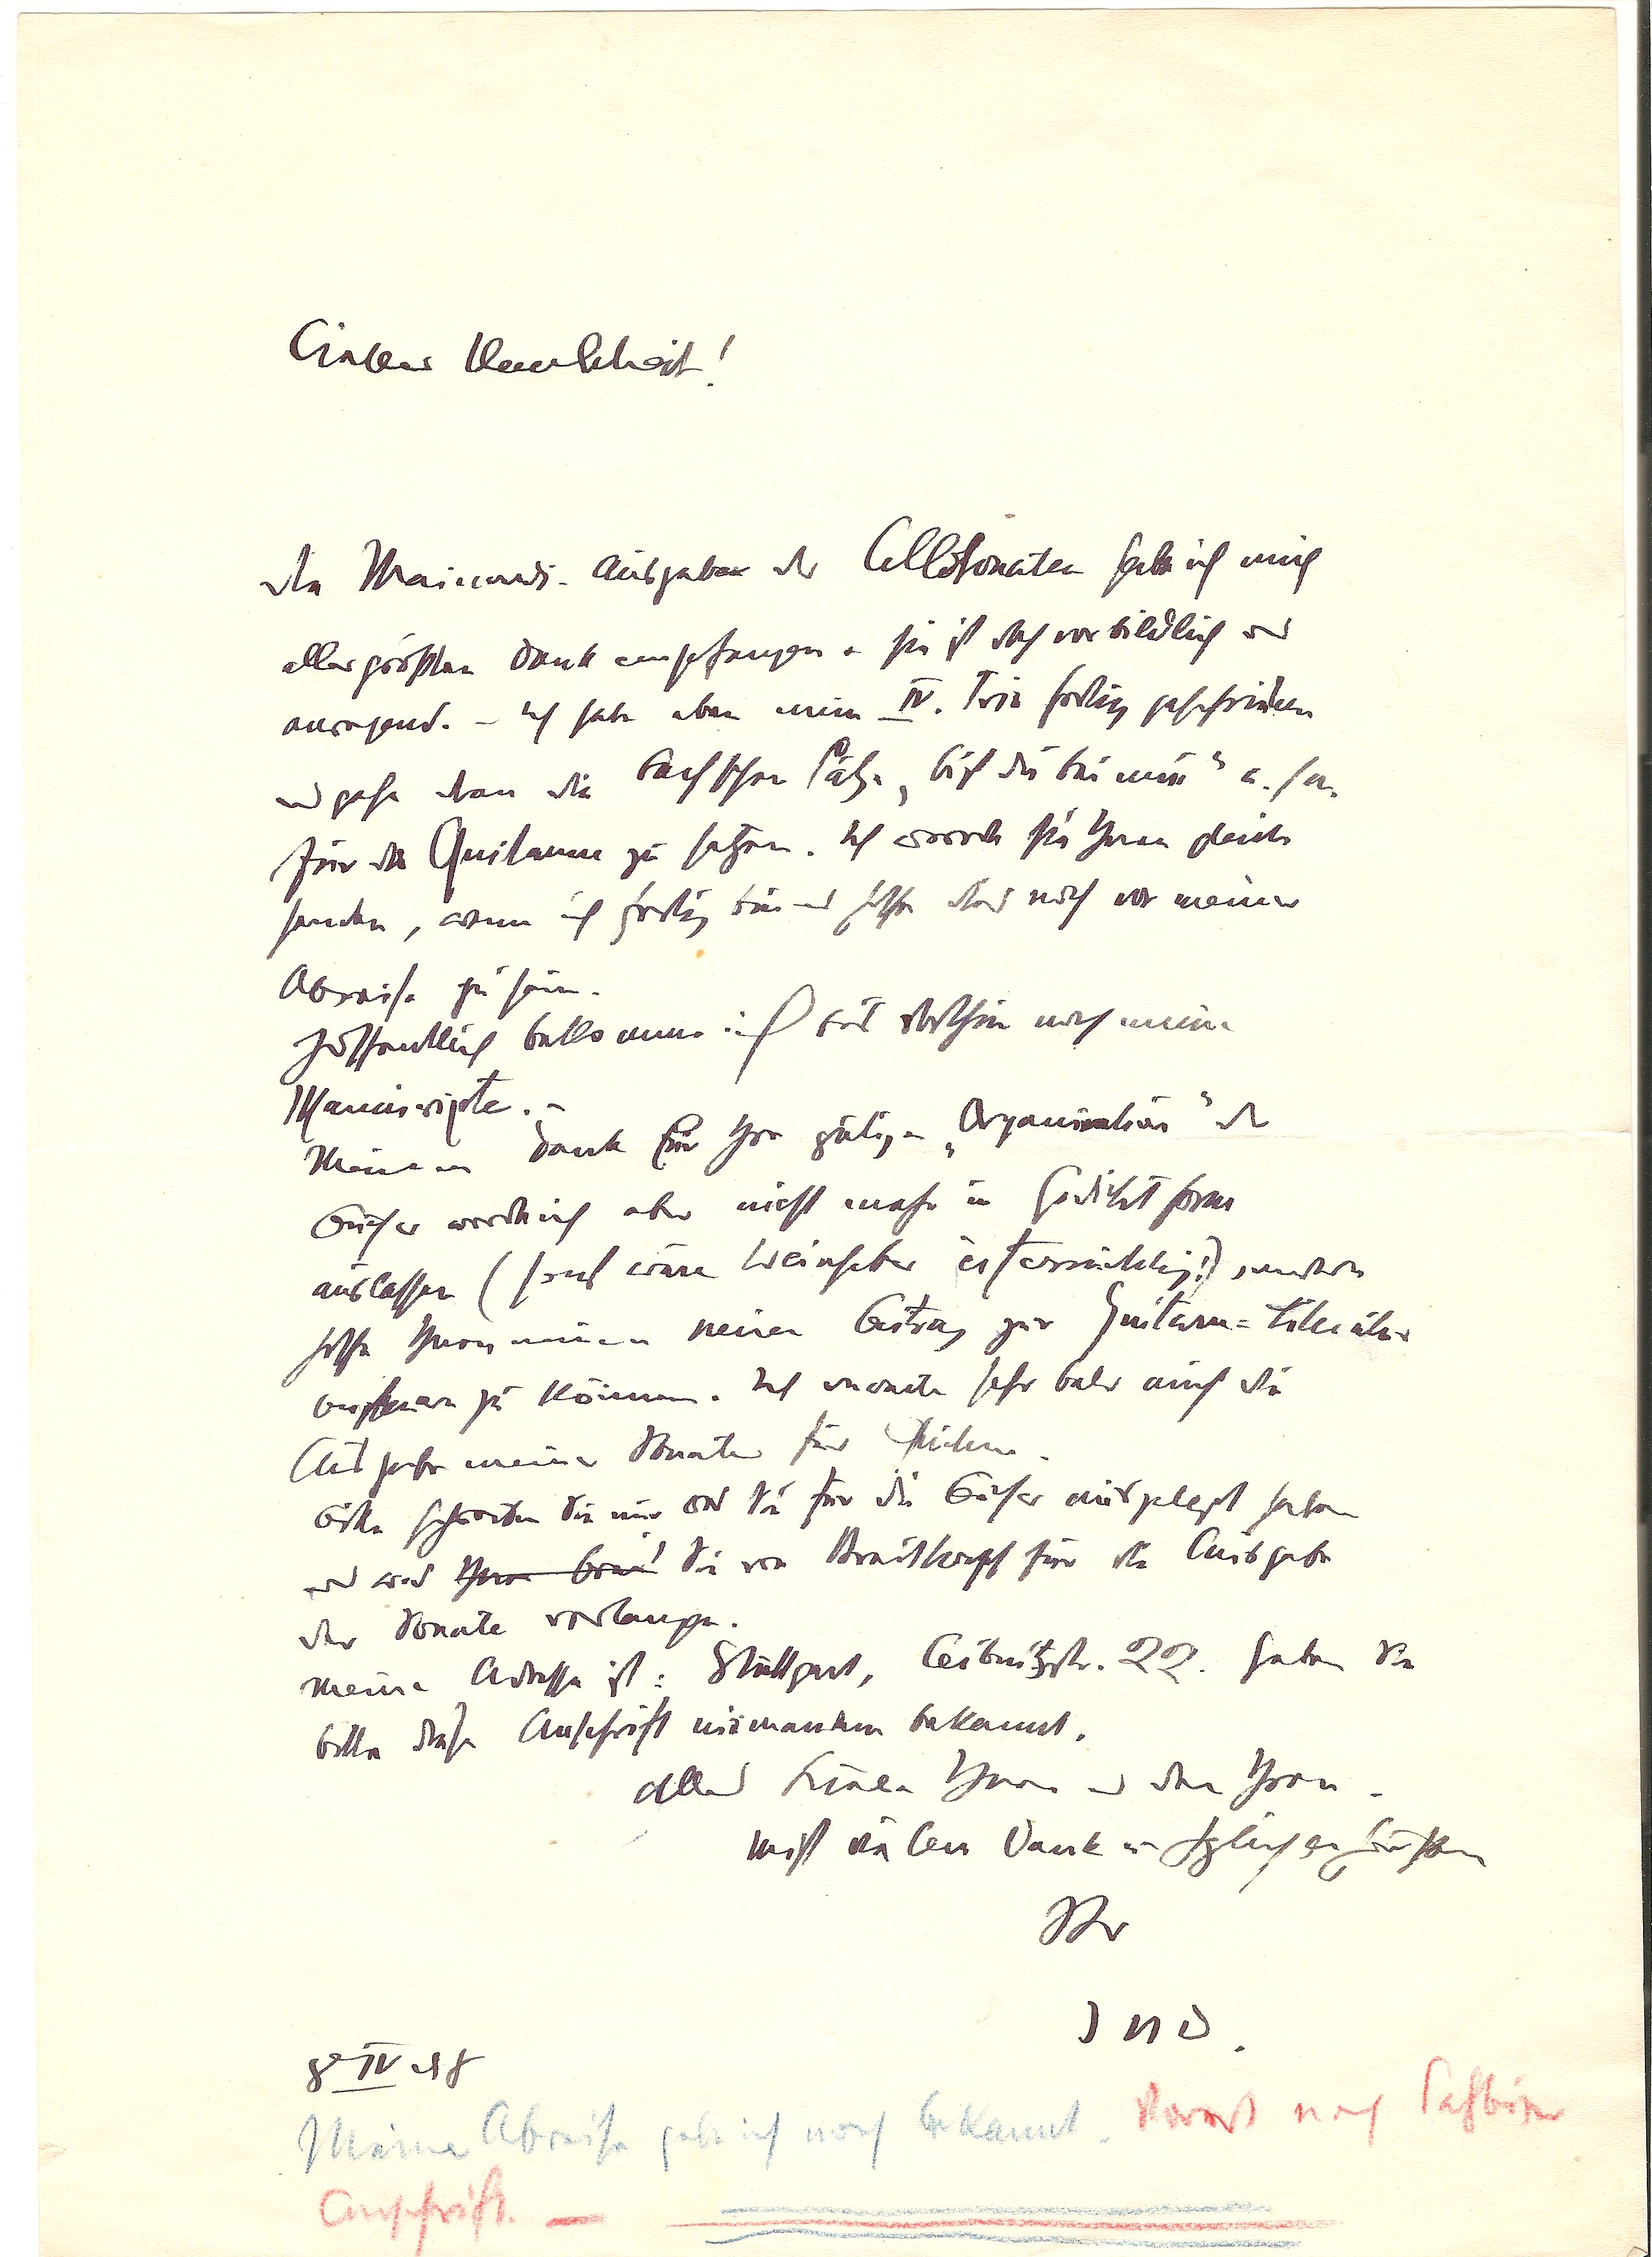 Lieber Karl Scheit!
die Mainardi-Ausgabe der Cellosonaten hab ich mit
allergrößtem Dank empfangen. Sie ist doch vorbildlich und
anregend. – Ich habe eben mein IV. Trio fertig geschrieben
und gehe dran die Bachschen Sätze „bist du bei mir“ u.
für die Guitarre zu setzen. Ich werde sie Ihnen gleich
senden, wenn ich fertig bin und hoffe das noch vor meiner
Abreise zu sein.
Hoffentlich bekomme ich bis dorthin noch meine
Manuscripte. –
Meinen Dank für Ihre gütige „Organisation“ der
Bücher werde ich aber nicht mehr in Gedichtform
auslassen (sonst wäre Weinheber eifersüchtig!), sondern
hoffe Ihnen meinen neuen Beitrag zur Guitarre-Literatur
zu können. Ich erwarte sehr bald auch die
Ausgabe meiner Sonate für
Bitte schreiben Sie mir was Sie für die Bücher ausgelegt haben
und was Sie von Breitkopf für die Ausgabe
der Sonate verlangen.
Meine Adresse ist: Stuttgart, Leibnitzstr. 22. Geben Sie
bitte diese Anschrift niemandem bekannt.
Alles Liebe Ihnen und den Ihren.
Mit vielem Dank u. hzlichen Grüßen
Ihr
JND.
8 IV 48
Meine Abreise gebe ich noch bekannt. Vorerst noch Salzburger
Anschrift. –